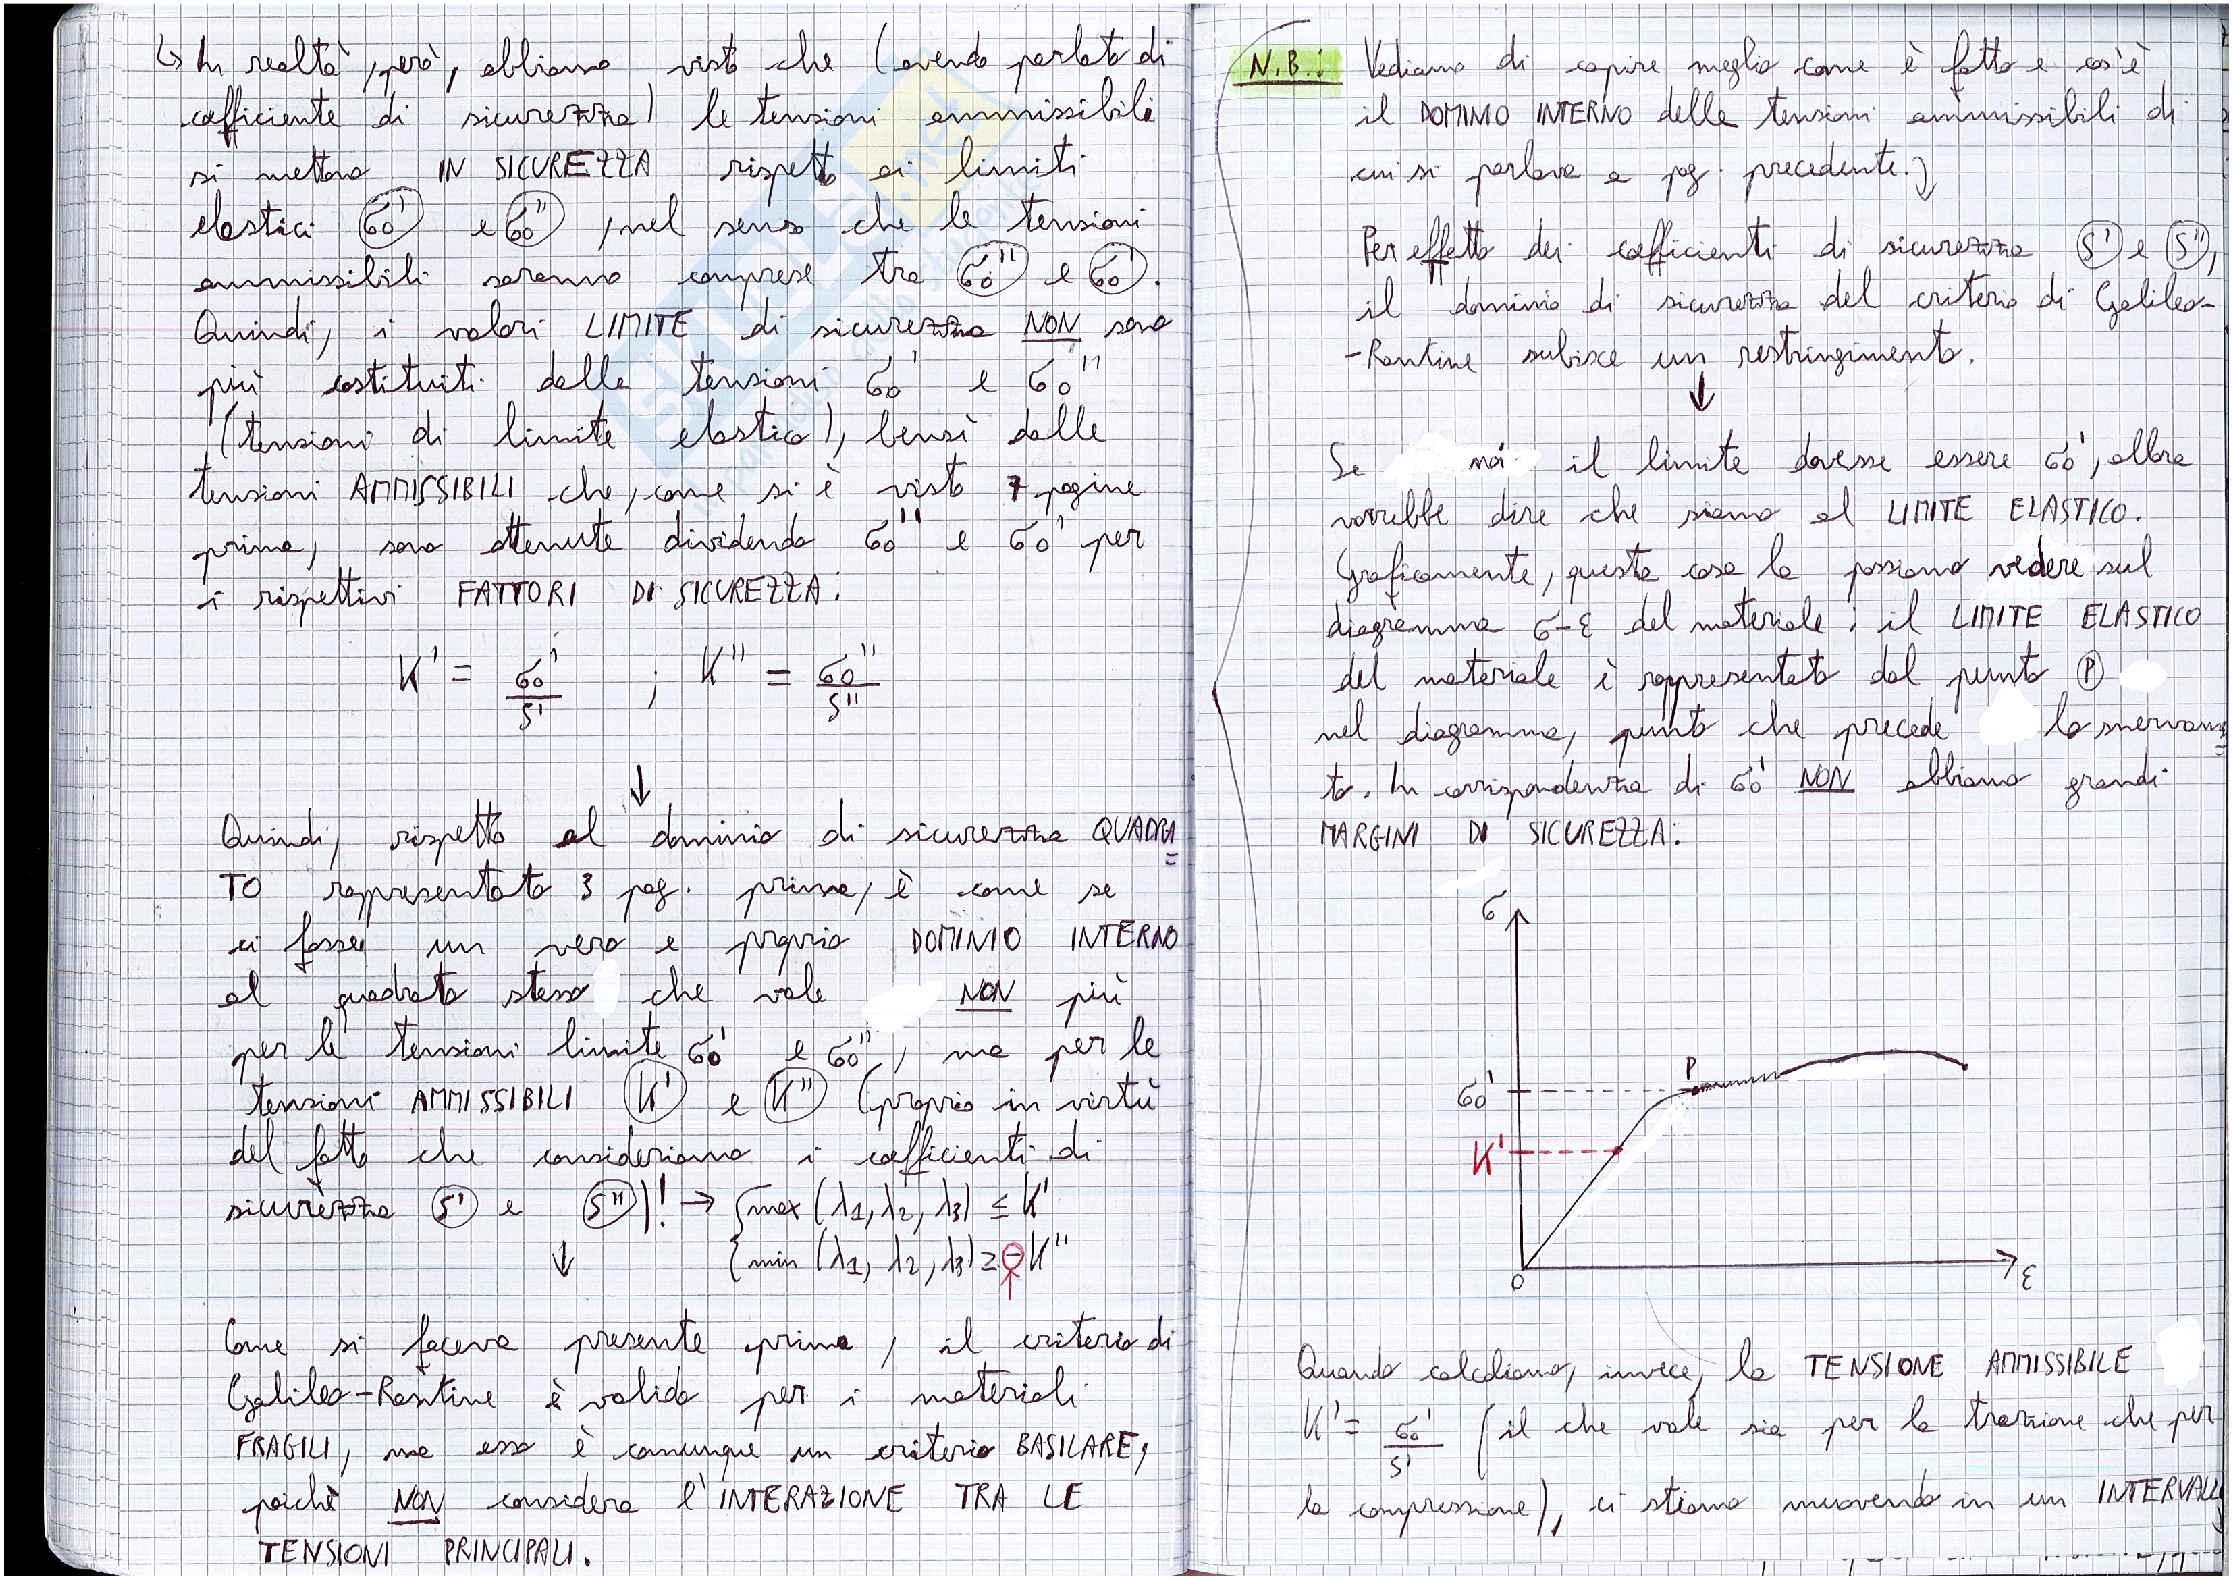 ↳ In realtà, però, abbiamo visto che (avendo parlato di
coefficiente di sicurezza) le tensioni ammissibili
si mettono IN SICUREZZA rispetto ai limiti
elastici σ0' e σ0'', nel senso che le tensioni
ammissibili saranno comprese tra σ0'' e σ0'.
Quindi, i valori LIMITE di sicurezza NON sono
più costituiti dalle tensioni σ0' e σ0''
(tensioni di limite elastico), bensì dalle
tensioni AMMISSIBILI che, come si è visto 7 pagine
prima, sono ottenute dividendo σ0'' e σ0' per
i rispettivi FATTORI DI SICUREZZA:
K' = σ0'/S' ; K'' = σ0''/S''
↓
Quindi, rispetto al dominio di sicurezza QUADRA=
TO rappresentato 3 pag. prima, è come se
ci fosse un vero e proprio DOMINIO INTERNO
al quadrato stesso che vale NON più
per le tensioni limite σ0' e σ0'', ma per le
tensioni AMMISSIBILI K' e K'' (proprio in virtù
del fatto che consideriamo i coefficienti di
sicurezza S' e S'')! → { max (λ1, λ2, λ3) ≤ K'
↓ { min (λ1, λ2, λ3) ≥ -K''
Come si faceva presente prima, il criterio di
Galileo-Rankine è valido per i materiali
FRAGILI, ma esso è comunque un criterio BASILARE,
poichè NON considera l'INTERAZIONE TRA LE
TENSIONI PRINCIPALI.
N.B.: Vediamo di capire meglio come è fatto e cos'è
il DOMINIO INTERNO delle tensioni ammissibili di
cui si parlava a pag. precedente.
Per effetto dei coefficienti di sicurezza S' e S'',
il dominio di sicurezza del criterio di Galileo-
-Rankine subisce un restringimento.
↓
Se mai il limite dovesse essere σ0', allora
vorrebbe dire che siamo al LIMITE ELASTICO.
Graficamente, questa cosa la possiamo vedere sul
diagramma σ-ε del materiale: il LIMITE ELASTICO
del materiale è rappresentato dal punto P
nel diagramma, punto che precede lo snervamen=
to. In corrispondenza di σ0' NON abbiamo grandi
MARGINI DI SICUREZZA:
σ
P
σ0'
K'
0
ε
Quando calcoliamo, invece, la TENSIONE AMMISSIBILE
K' = σ0'/S' (il che vale sia per la trazione che per
la compressione), ci stiamo muovendo in un INTERVALLO